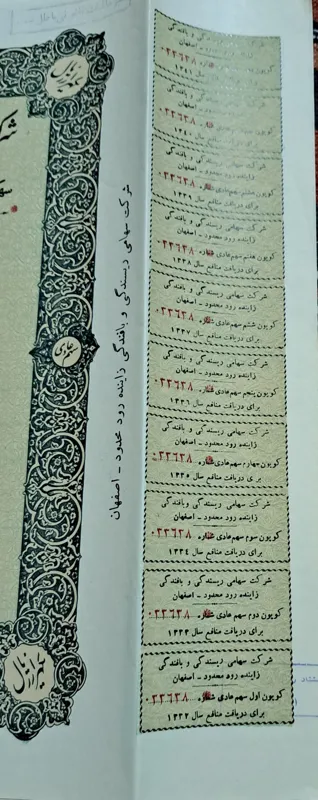 سهم عادی
شرکت سهامی ریسندگی و بافندگی زاینده رود محدود - اصفهان
شرکت سهامی ریسندگی و بافندگی
زاینده رود محدود - اصفهان
کوپون سهم عادی شماره ۰۳۳۶۳۸
سال ۱۳۴۱
شرکت سهامی ریسندگی و بافندگی
زاینده رود محدود - اصفهان
کوپون سهم عادی شماره ۰۳۳۶۳۸
سال ۱۳۴۰
شرکت سهامی ریسندگی و بافندگی
زاینده رود محدود - اصفهان
کوپون هشتم سهم عادی شماره ۰۳۳۶۳۸
برای دریافت منافع سال ۱۳۳۹
شرکت سهامی ریسندگی و بافندگی
زاینده رود محدود - اصفهان
کوپون هفتم سهم عادی شماره ۰۳۳۶۳۸
برای دریافت منافع سال ۱۳۳۸
شرکت سهامی ریسندگی و بافندگی
زاینده رود محدود - اصفهان
کوپون ششم سهم عادی شماره ۰۳۳۶۳۸
برای دریافت منافع سال ۱۳۳۷
شرکت سهامی ریسندگی و بافندگی
زاینده رود محدود - اصفهان
کوپون پنجم سهم عادی شماره ۰۳۳۶۳۸
برای دریافت منافع سال ۱۳۳۶
شرکت سهامی ریسندگی و بافندگی
زاینده رود محدود - اصفهان
کوپون چهارم سهم عادی شماره ۰۳۳۶۳۸
برای دریافت منافع سال ۱۳۳۵
شرکت سهامی ریسندگی و بافندگی
زاینده رود محدود - اصفهان
کوپون سوم سهم عادی شماره ۰۳۳۶۳۸
برای دریافت منافع سال ۱۳۳۴
شرکت سهامی ریسندگی و بافندگی
زاینده رود محدود - اصفهان
کوپون دوم سهم عادی شماره ۰۳۳۶۳۸
برای دریافت منافع سال ۱۳۳۳
شرکت سهامی ریسندگی و بافندگی
زاینده رود محدود - اصفهان
کوپون اول سهم عادی شماره ۰۳۳۶۳۸
برای دریافت منافع سال ۱۳۳۲